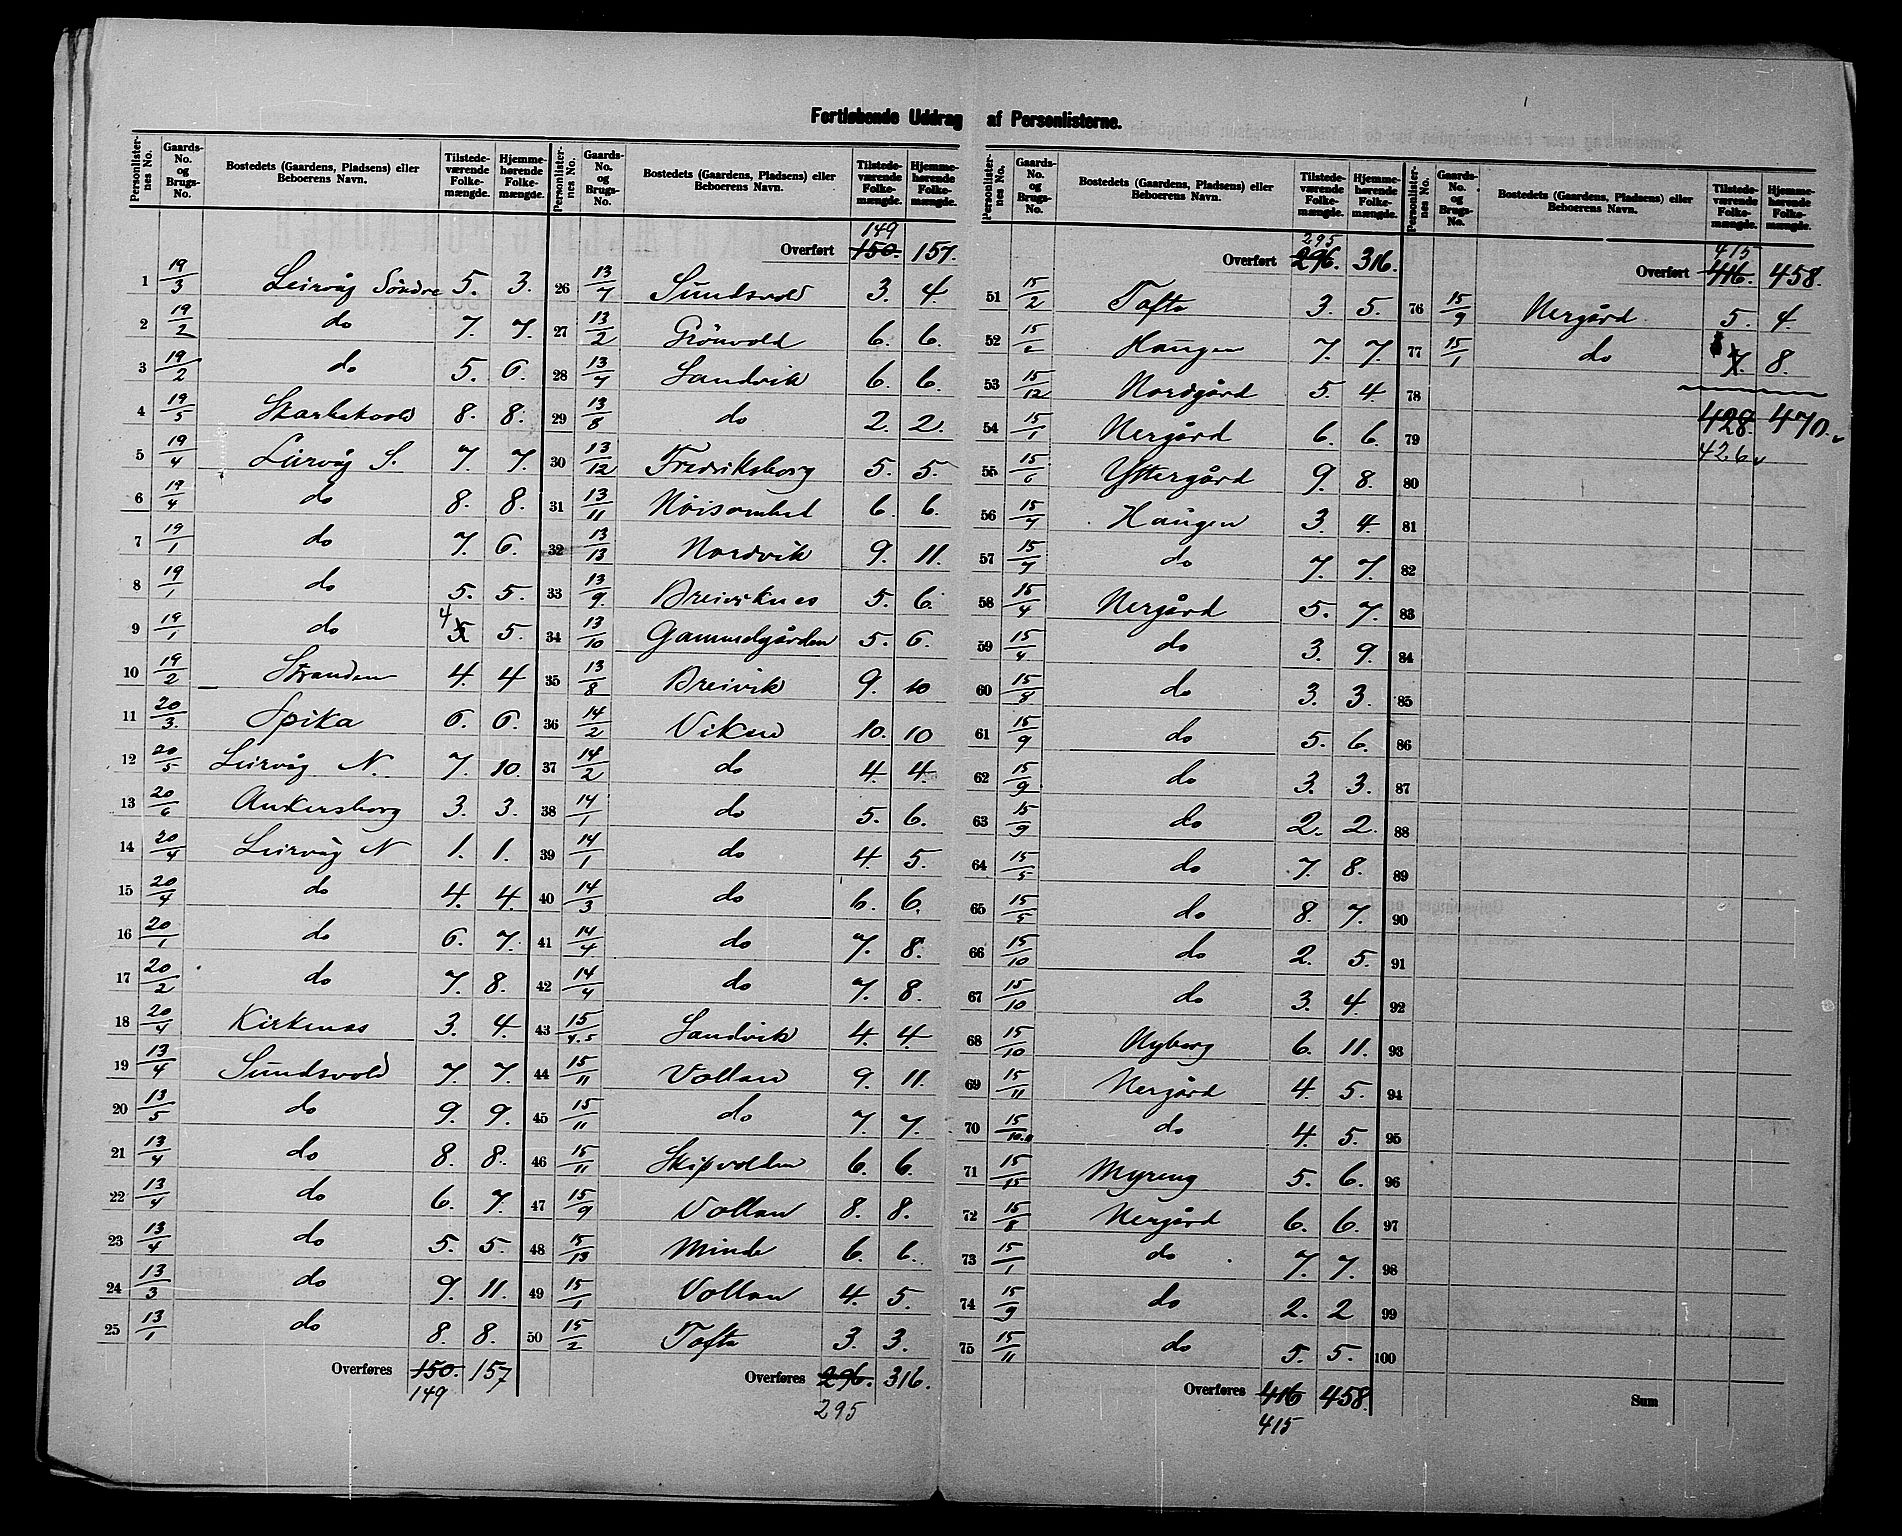 Fortløbende Uddrag af Personlisterne.
Personlister-nes No. Gaards-No. og Brugs-No. Bostedets (Gaardens, Pladsens) eller Beboerens Navn. Tilstede-værende Folke-mængde. Hjemme-hørende Folke-mængde.
1 19/3 Leirvåg Söndre 5. 3.
2 19/2 do 7. 7.
3 19/2 do 5. 6.
4 19/5 8. 8.
5 19/4 Leirvåg S. 7. 7.
6 19/4 do 8. 8.
7 19/1 do 7. 6.
8 19/1 do 5. 5.
9 19/1 do 4 5. 5.
10 19/2 Stranden 4. 4
11 20/3 Spika 6. 6.
12 20/5 Leirvåg N. 7. 10.
13 20/6 Ankersborg 3. 3.
14 20/4 Leirvåg N 1. 1.
15 20/4 do 4. 4.
16 20/1 do 6. 7.
17 20/2 do 7. 8.
18 20/4 Kirkenæs 3. 4.
19 13/4 Sundsvold 7. 7.
20 13/5 do 9. 9.
21 13/4 do 8. 8.
22 13/4 do 6. 7.
23 13/4 do 5. 5.
24 13/3 do 9. 11.
25 13/1 do 8. 8.
Overføres 150. 157
149
Personlister-nes No. Gaards-No. og Brugs-No. Bostedets (Gaardens, Pladsens) eller Beboerens Navn. Tilstede-værende Folke-mængde. Hjemme-hørende Folke-mængde.
149
Overført 150. 157.
26 13/7 Sundsvold 3. 4
27 13/2 Grönvold 6. 6.
28 13/7 Sandvik 6. 6.
29 13/8 do 2. 2.
30 13/12 Fredriksborg 5. 5.
31 13/11 Nöisomhed 6. 6.
32 13/13 Nordvik 9. 11.
33 13/9 Breiviknes 5. 6.
34 13/10 Gammelgården 5. 6.
35 13/8 Breivik 9. 10
36 14/2 Viken 10. 10
37 14/2 do 4. 4.
38 14/1 do 5. 6.
39 14/1 do 4 5.
40 14/3 do 6. 6.
41 14/4 do 7. 8.
42 14/4 do 7. 8.
43 15/4.5 Sandvik 4. 4.
44 15/11 Vollan 9. 11.
45 15/11 do 7. 7.
46 15/11 Skipvollen 6. 6.
47 15/9 Vollan 8. 8.
48 15/13 Minde 6. 6.
49 15/1 Vollan 4. 5.
50 15/2 Tofte 3. 3.
Overføres 296. 316.
295
Personlister-nes No. Gaards-No. og Brugs-No. Bostedets (Gaardens, Pladsens) eller Beboerens Navn. Tilstede-værende Folke-mængde. Hjemme-hørende Folke-mængde.
295
Overført 296. 316.
51 15/2 Tofte 3. 5.
52 Haugen 7. 7.
53 15/12 Nordgård 5. 4
54 15/1 Nergård 6. 6.
55 15/6 Yttergård 9. 8.
56 15/7 Haugen 3. 4
57 15/7 do 7. 7.
58 15/4 Nergård 5. 7.
59 15/4 do 3. 9.
60 15/8 do 3. 3.
61 15/9 do 5. 6.
62 15/9 do 3. 3.
63 15/9 do 2. 2.
64 15/5 do 7. 8.
65 15/5 do 8. 7.
66 15/10 do 2. 5.
67 15/10 do 3. 4
68 15/10 Nyborg 6. 11.
69 15/11 Nergård 4. 5.
70 15/10.11 do 4. 5.
71 15/15 Myreng 5. 6.
72 15/8 Nergård 6. 6.
73 15/1 do 7. 7.
74 15/9 do 2. 2
75 15/11 do 5. 5.
Overføres 416 458.
415
Personlister-nes No. Gaards-No. og Brugs-No. Bostedets (Gaardens, Pladsens) eller Beboerens Navn. Tilstede-værende Folke-mængde. Hjemme-hørende Folke-mængde.
415
Overført 416. 458.
76 15/9 Nergård 5. 4.
77 15/1 do 7. 8.
78
428. 470.
79
426
80
81
82
83
84
85
86
87
88
89
90
91
92
93
94
95
96
97
98
99
100
Sum